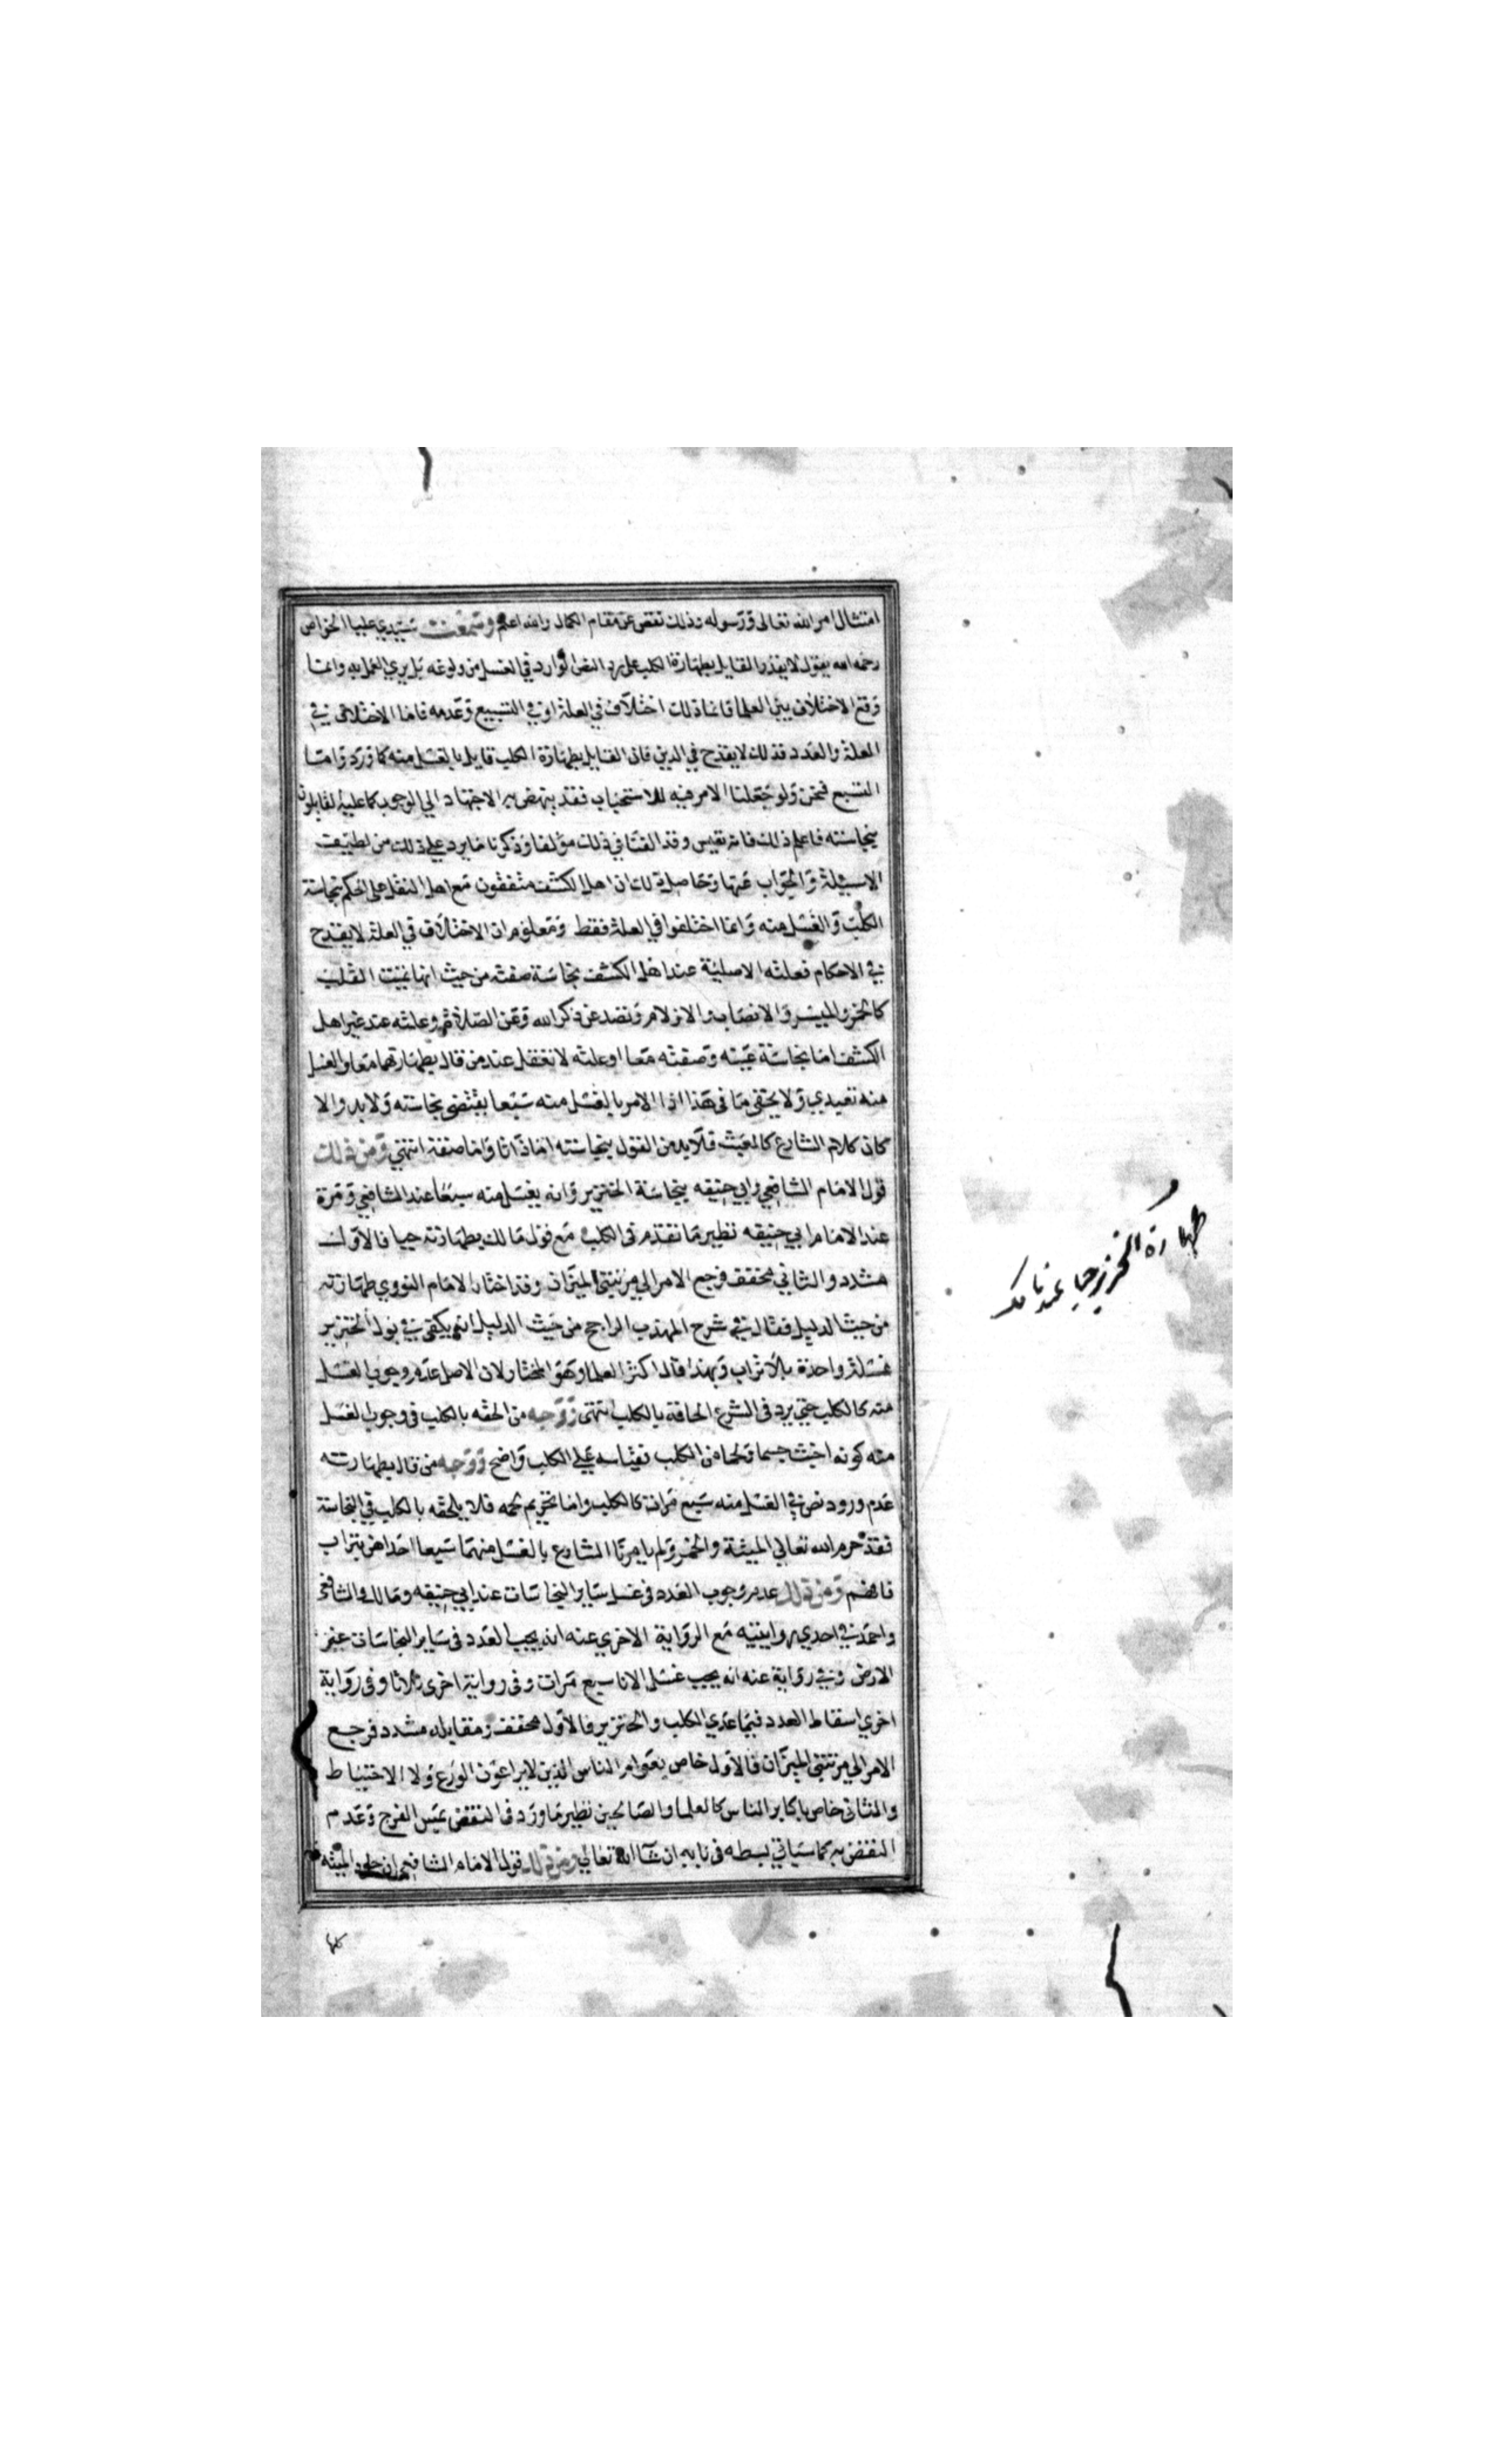 امتثال امر الله تعالى ورسوله وذلك نقص عن مقام الكمال والله اعلم وسمعت سيدي عليا الخواص
رحمه الله يقول لا يقدر القايل بطهارة الكلب على رد النص الوارد في الغسل من ولوغه بل يري العمل به وانما
وقع الاختلاف بين العلما فانما ذلك اختلاف في العلة او في التسبيع وعدمه فاما الاختلاف في
العلة والعدد فذلك لا يقدح في الدين فان القايل بطهارة الكلب قايل بالغسل منه كما ورد واما
التسبع فحسن ولو جعلنا الامر فيه للاستحباب فقد ينهض به الاجتهاد الي الوجوب كما عليه القايلون
بنجاسته فاعلم ذلك فانه نفيس وقد الفنا في ذلك مؤلفا وذكرنا ما يرد علي ذلك من لطيف
الاسيلة والجواب عنها وحاصل ذلك ان اهل الكشف متفقون مع اهل النقل على الحكم بنجاسة
الكلب والغسل منه وانما اختلفوا في العلة فقط ومعلوم ان الاختلاف في العلة لا يقدح
في الاحكام فعلته الاصلية عند اهل الكشف نجاسة صفته من حيث انها تميت القلب
كالخمر والميسر والانصاب والازلام وتصد عن ذكر الله وعن الصلاة وعلته عند غير اهل
الكشف اما نجاسة عينه وصفته معا او علته لا تعقل عند من قال بطهارتهما معا والغسل
منه تعبدي ولا يخفي ما في هذا اذ الامر بالغسل منه سبعا يقتضي نجاسته ولا بد والا
كان كلام الشارع كالعبث فلا بد من القول بنجاسته اما ذاتا واما صفة انتهي ومن ذلك
قول الامام الشافعي وابي حنيفه بنجاسة الخنزير وانه يغسل منه سبعا عند الشافعي ومرة
عند الامام ابي حنيفه نظير ما تقدم في الكلب مع قول مالك بطهارته حيا فالاول
مشدد والثاني مخفف فرجع الامر الي مرتبتي الميزان وقد اختار الامام النووي طهارته
من حيث الدليل فقال في شرح المهذب الراجح من حيث الدليل انه يكفي في بول الخنزير
غسلة واحدة بلا تراب وبهذا قال اكثر العلما وهو المختار لان الاصل عدم وجوب الغسل
منه كالكلب حتي يرد في الشرع الحاقه بالكلب انتهى ووجه من الحقه بالكلب في وجوب الغسل
منه كونه اخبث جسما ولحما من الكلب فقياسه علي الكلب واضح ووجه من قال بطهارته
عدم ورود نص في الغسل منه سبع مرات كالكلب واما تحريم لحمه فلا يلحقه بالكلب في النجاسة
فقد حرم الله تعالي الميتة والخمر ولم يامرنا الشارع بالغسل منهما سبعا احداهن بتراب
فافهم ومن ذلك عدم وجوب العدد في غسل ساير النجاسات عند ابي حنيفه ومالك والشافعي
واحمد في احدي روايتيه مع الرواية الاخري عنه انه يجب العدد في ساير النجاسات غير
الارض وفي رواية عنه انه يجب غسل الانا سبع مرات وفي رواية اخري ثلاثا وفي رواية
اخري اسقاط العدد فيما عدي الكلب والخنزير فالاول مخفف ومقابله مشدد فرجع
الامر الي مرتبتي الميزان فالاول خاص بعوام الناس الذين لا يراعون الورع ولا الاحتياط
والثاني خاص باكابر الناس كالعلما والصالحين نظير ما ورد في النقض بمس الفرج وعدم
النقض به كما سياتي بسطه في بابه ان شاء الله تعالي ومن ذلك قول الامام الشافعي ان جلود الميتة
طهارة الخنزير حيا عند مالك